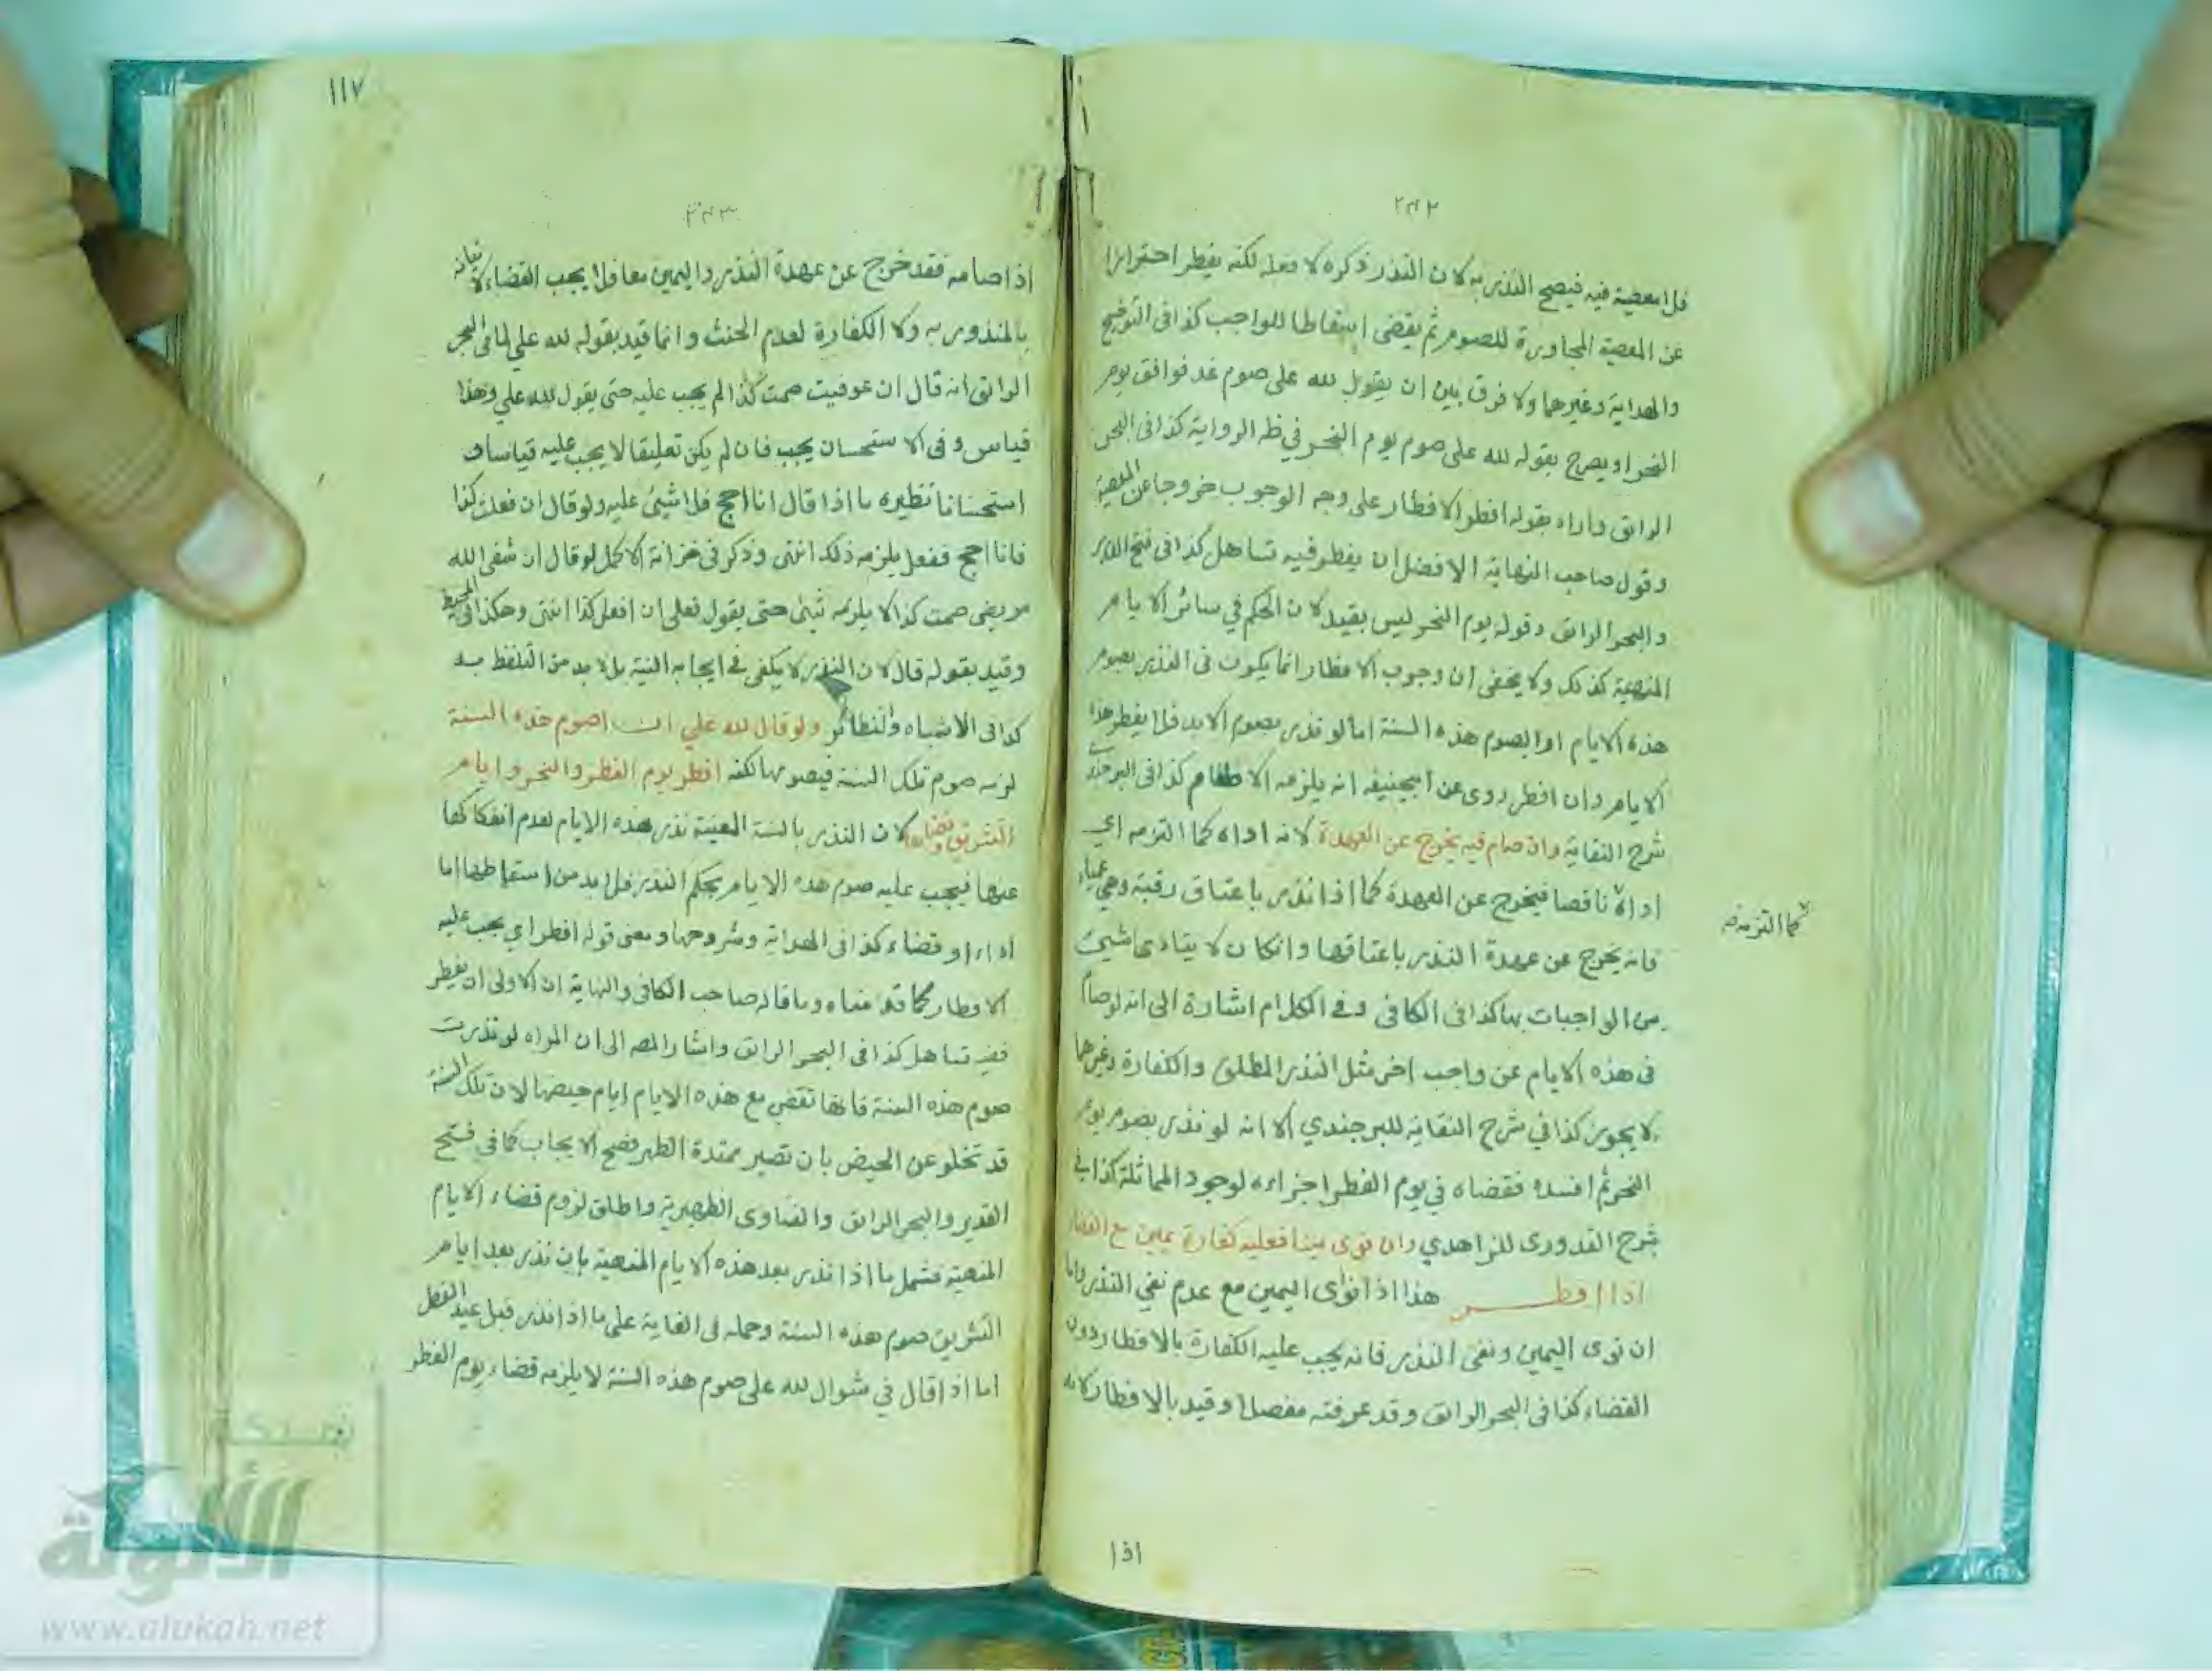 ٢٤٢
فلا معصية فيه فيصح النذر به لان النذر ذكره لا فعله لكنه يفطر احترازا
عن المعصية المجاورة للصوم ثم يقضى اسقاطا للواجب كذا فى التوضيح
والهداية وغيرهما ولا فرق بين ان يقول لله على صوم غد فوافق يوم
النحر او يصرح بقوله لله على صوم يوم النحر في ظه الرواية كذا فى البحر
الرائق واراد بقوله افطر الافطار على وجه الوجوب خروجا عن المعصية
وقول صاحب النهاية الافضل ان يفطر فيه تساهل كذا فى فتح القدير
والبحر الرائق وقوله يوم النحر ليس بقيد لان الحكم في سائر الايام
المنهية كذلك ولا يخفى ان وجوب الافطار انما يكون فى النذر بصوم
هذه الايام او بصوم هذه السنة اما لو نذر بصوم الابد فلا يفطر هذه
الايام وان افطر روى عن ابيحنيفه انه يلزمه الاطعام كذا فى البرجندى
شرح النقاية وان صام فيه يخرج عن العهدة لانه اداه كما التزمه اي
اداه ناقصا فيخرج عن العهدة كما اذا نذر باعتاق رقبة وهي عمياء
فانه يخرج عن عهدة النذر باعتاقها وانكان لا يتادى شيئ
من الواجبات بها كذا فى الكافى وفي الكلام اشارة الى انه لو صام
فى هذه الايام عن واجب اخر مثل النذر المطلق والكفارة وغيرهما
لا يجوز كذا في شرح النقاية للبرجندي الا انه لو نذر بصوم يوم
النحر ثم افسده فقضاه في يوم الفطر اجزاءه لوجود المماثلة كذا في
شرح القدورى للزاهدي وان نوى يمينا فعليه كفارة يمين مع القضا
اذا افطر هذا اذا نوى اليمين مع عدم نفي النذر واما
ان نوى اليمين ونفى النذر فانه يجب عليه الكفارة بالافطار دون
القضاء كذا فى البحر الرائق وقد عرفته مفصلا وقيد بالافطار لانه
اذا
كما التزمه
١١٧
٢٤٣
اذا صامه فقد خرج عن عهدة النذر واليمين معا فلا يجب القضاء لاتيانه
بالمنذور به ولا الكفارة لعدم الحنث وانما قيد بقوله لله علي لما فى البحر
الرائق انه قال ان عوفيت صمت كذا لم يجب عليه حتى يقول لله علي وهذا
قياس وفى الاستحسان يجب فان لم يكن تعليقا لا يجب عليه قياسا و
استحسانا نظيره ما اذا قال انا احج فلا شيئ عليه ولو قال ان فعلت كذا
فانا احج ففعل يلزمه ذلك انتهى وذكر فى خزانة الاكمل لو قال ان شفى الله
مريضى صمت كذا لا يلزمه شيئ حتى يقول فعلى ان افعل كذا انتهى وهكذا فى المحيط
وقيد بقوله قال لان النذر لا يكفى في ايجابه النية بل لا بد من التلفظ به
كذا فى الاشباه والنظائر ولو قال لله علي ان اصوم هذه السنة
لزمه صوم تلك السنة فيصومها لكنه افطر يوم الفطر والنحر وايام
التشريق وقضاها لان النذر بالسنة المعينة نذر بهذه الايام لعدم انفكاكها
عنها فيجب عليه صوم هذه الايام بحكم النذر فلا بد من اسقاطها اما
اداء او قضاء كذا فى الهداية وشروحها ومعنى قوله افطر اي يجب عليه
الافطار كما قدمناه وما قاله صاحب الكافى والنهاية ان الاولى ان يفطر
ففيه تساهل كذا فى البحر الرائق واشار المصه الى ان المراه لو نذرت
صوم هذه السنة فانها تقضى مع هذه الايام ايام حيضها لان تلك السنة
قد تخلو عن الحيض بان تصير ممتدة الطهر فصح الايجاب كما في فتح
القدير والبحر الرائق والفتاوى الظهيرية واطلق لزوم قضاء الايام
المنهية فشمل ما اذا نذر بعد هذه الايام المنهية بان نذر بعد ايام
التشريق صوم هذه السنة وحمله فى الغاية على ما اذا نذر قبل عيد الفطر
اما اذا قال في شوال لله على صوم هذه السنة لا يلزمه قضاء يوم الفطر
شبكة
الألوكة
www.alukah.net